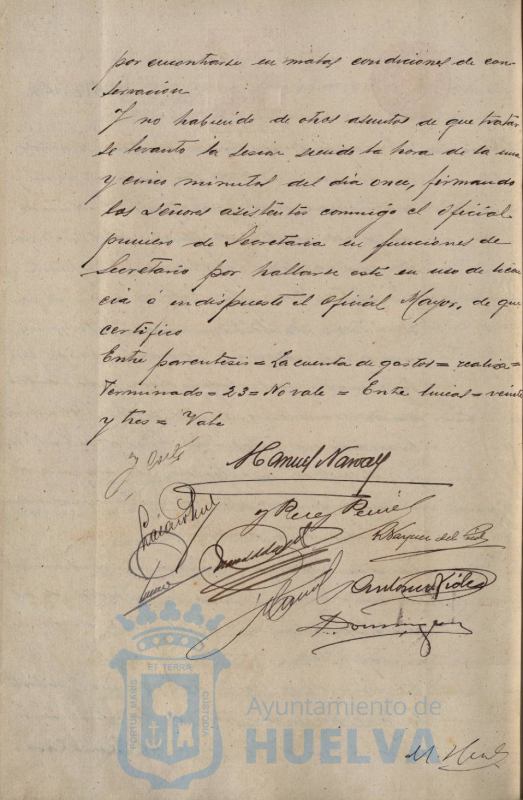 por encontrarse en malas condiciones de con
servacion
Y no habiendo de otros asuntos de que tratar
se levanto la sesion siendo la hora de la una
y cinco minutos del dia once, firmando
los Señores asistentes conmigo el Oficial
primero de Secretaria en funciones de
Secretario por hallarse este en uso de licen
cia é indispuesto el Oficial Mayor, de que
certifico
Entre parentesis = La cuenta de gastos = realiza =
Terminado = 23 = No vale = Entre lineas = veinte
y tres = Vale
Manuel
y Perez
Vazquez del
Antonio
Dominguez
PORTUS MARIS ET TERRÆ CUSTODIA
Ayuntamiento de
HUELVA
M.